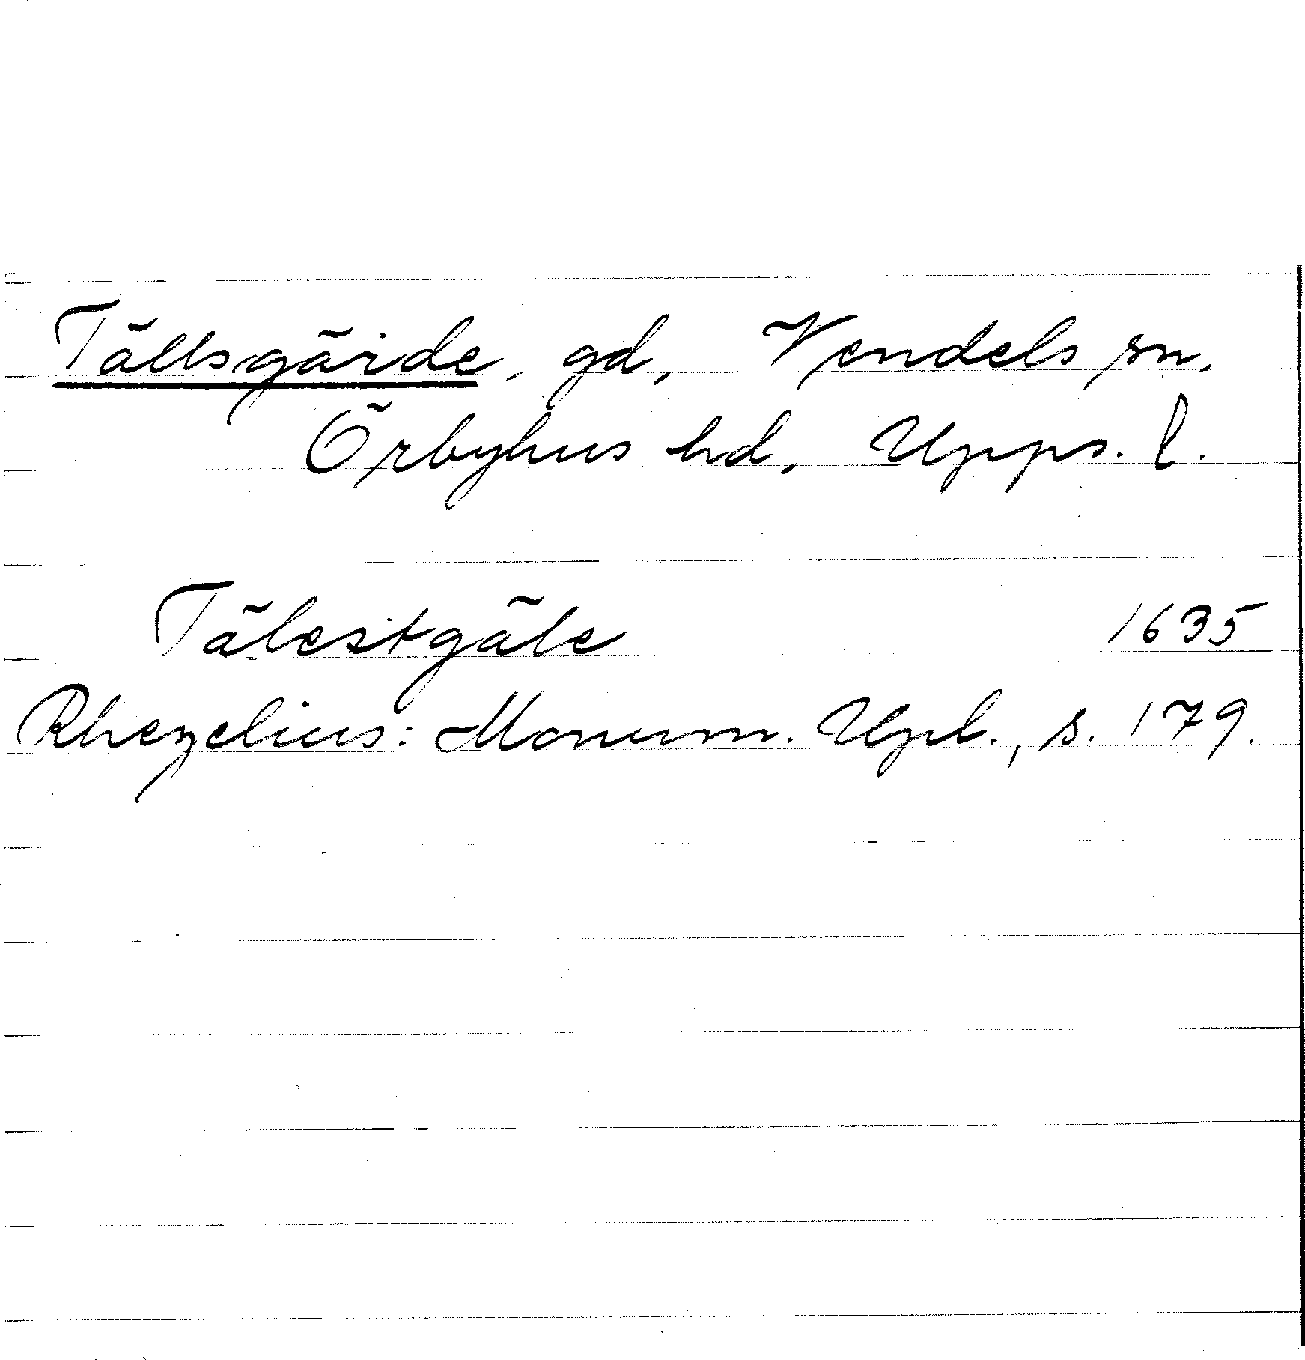 Tällsgärde, gd, Vendels sn,
Örbyhus hd, Upps. l.
Tälestgäle 1635
Rhezelius: Monum. Upl., s. 179.